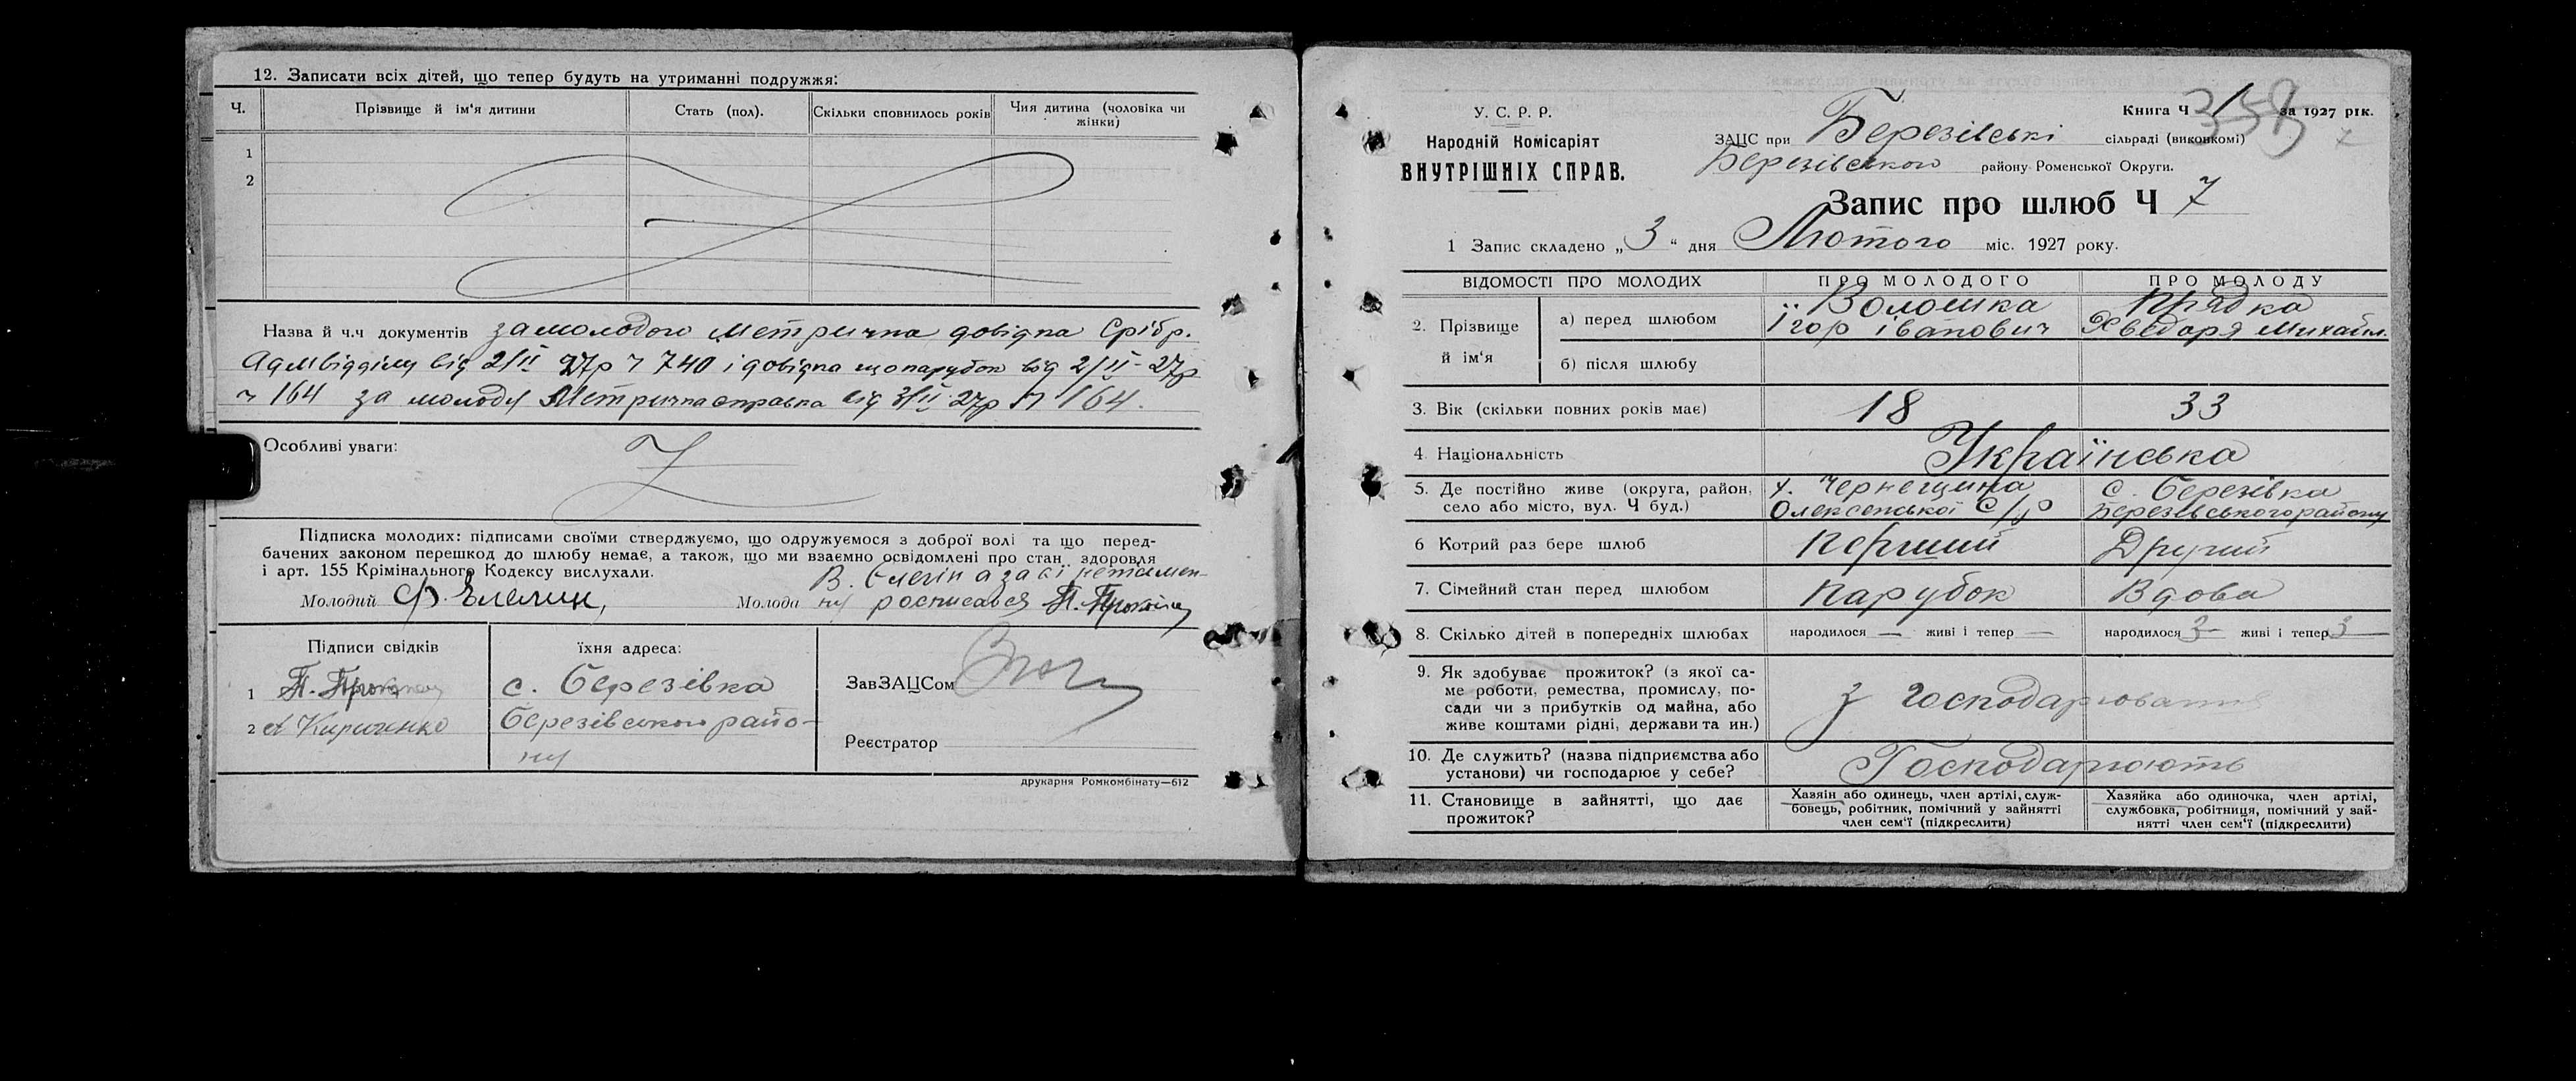 12. Записати всіх дітей, що тепер будуть на утриманні подружжя:
Ч. Прізвище й ім'я дитини Стать (пол). Скільки сповнилось років Чия дитина (чоловіка чи жінки)
1
2
Назва й ч.ч документів за молодого Метрична довідка Срібр.
Адмвідділу від 2/II 27р ч 740 і довідка що парубок від 2/II-27р
ч 164 за молоду Метрична справка від 3/II 27р ч 164.
Особливі уваги:
Підписка молодих: підписами своїми стверджуємо, що одружуємося з доброї волі та що перед-
бачених законом перешкод до шлюбу немає, а також, що ми взаємно освідомлені про стан здоровля
і арт. 155 Крімінального Кодексу вислухали.
Молодий Молода ну росписався
Підписи свідків їхня адреса:
1 с. Березівка ЗавЗАЦСом
2 А Кириченко Березівського райо-
ну Реєстратор
друкарня Ромкомбінату—612
У. С. Р. Р.
Народній Комісаріят
ВНУТРІШНІХ СПРАВ.
Книга Ч 1 за 1927 рік.
358
7
ЗАЦС при Березівські сільраді (виконкомі)
Березівського району Роменської Округи.
Запис про шлюб Ч 7
1 Запис складено „3" дня Лютого міс. 1927 року.
ВІДОМОСТІ ПРО МОЛОДИХ ПРО МОЛОДОГО ПРО МОЛОДУ
2. Прізвище й ім'я
а) перед шлюбом Волошка Прядка
Ігор Іванович Хведоря Михайл.
б) після шлюбу
3. Вік (скільки повних років має) 18 33
4 Національність Українська
5. Де постійно живе (округа, район, х. Чернещина с. Березівка
село або місто, вул. Ч буд.) Олексенської С/р Березівського району
6 Котрий раз бере шлюб Перший Другий
7. Сімейний стан перед шлюбом Парубок Вдова
8. Скілько дітей в попередніх шлюбах народилося — живі і тепер — народилося 3 живі і тепер 3
9. Як здобуває прожиток? (з якої са-
ме роботи, ремества, промислу, по-
сади чи з прибутків од майна, або
живе коштами рідні, держави та ин.)
з господарювання
10. Де служить? (назва підприємства або
установи) чи господарює у себе?
Господарюють
11. Становище в зайнятті, що дає
прожиток?
Хазяін або одинець, член артілі, служ-
бовець, робітник, помічний у зайнятті
член сем'ї (підкреслити)
Хазяйка або одиночка, член артілі,
службовка, робітниця, помічний у зай-
нятті член сем'ї (підкреслити)